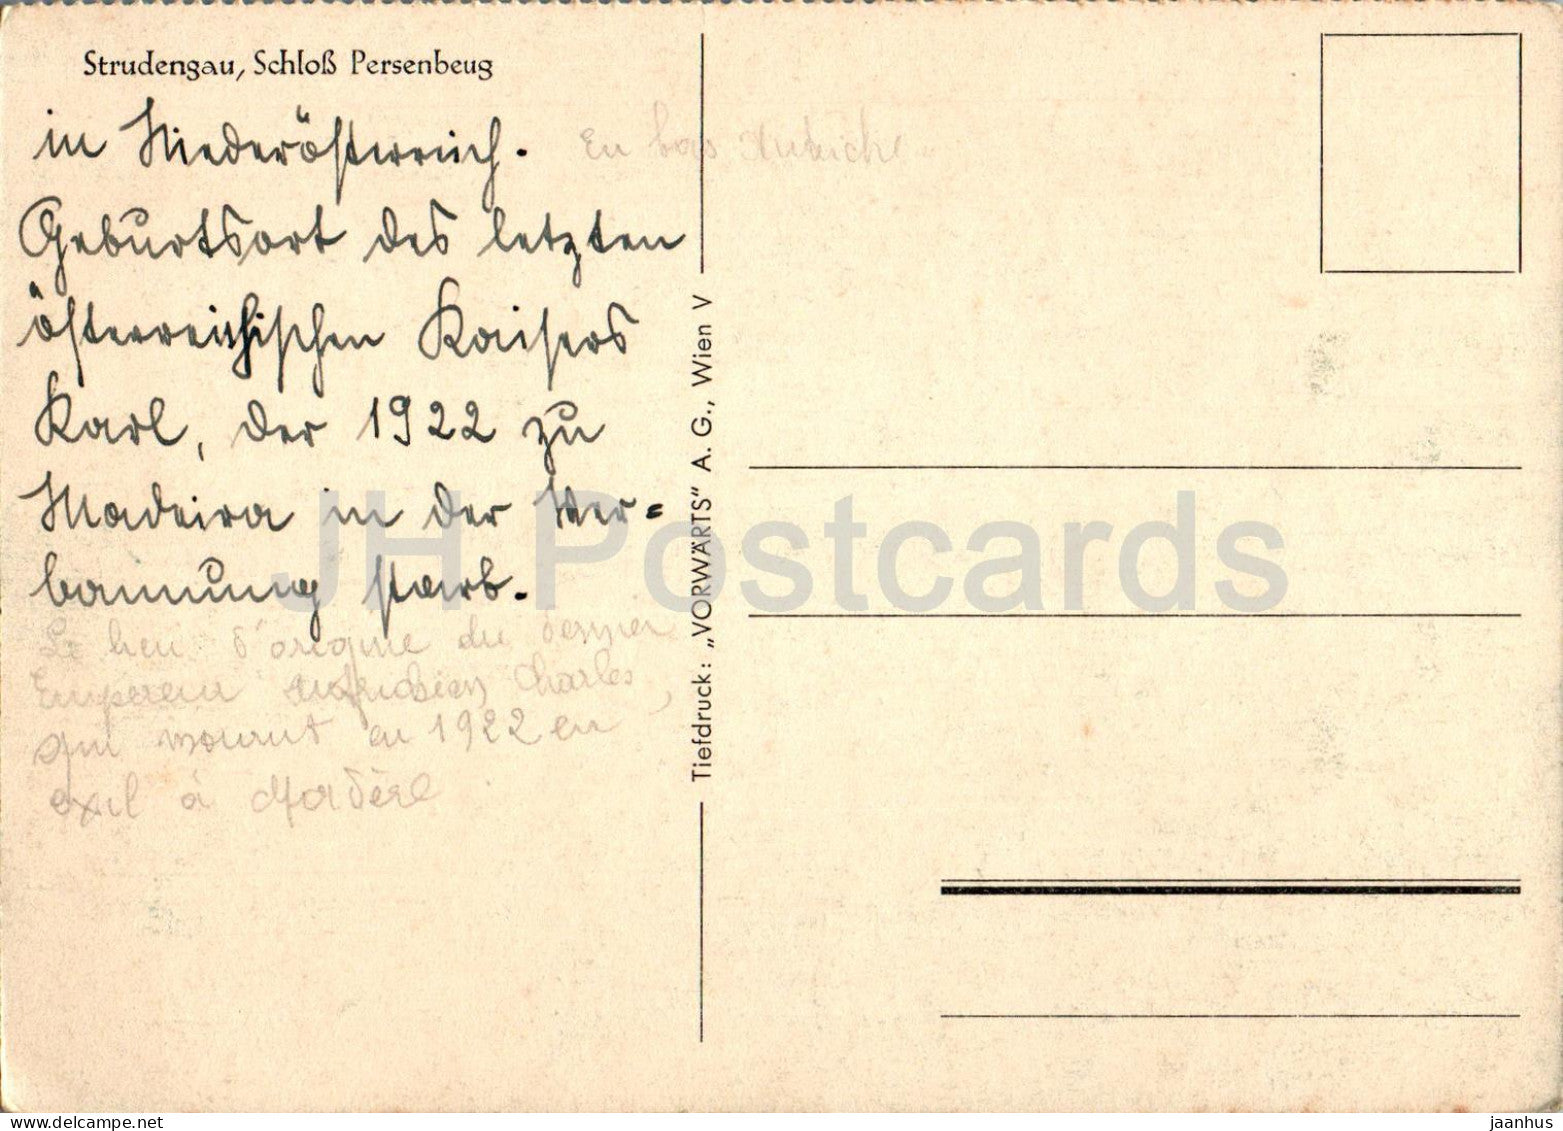 Strudengau, Schloß Persenbeug
in Niederösterreich.
En bas Autriche
Geburtsort des letzten
österreichischen Kaisers
Karl, der 1922 zu
Madeira in der Ver=
bannung starb.
Le lieu d'origine du dernier
Empereur autrichien Charles,
qui mourut en 1922 en
exil à Madère
Tiefdruck: „VORWÄRTS" A. G., Wien V
JH Postcards
www.delcampe.net
jaanhus